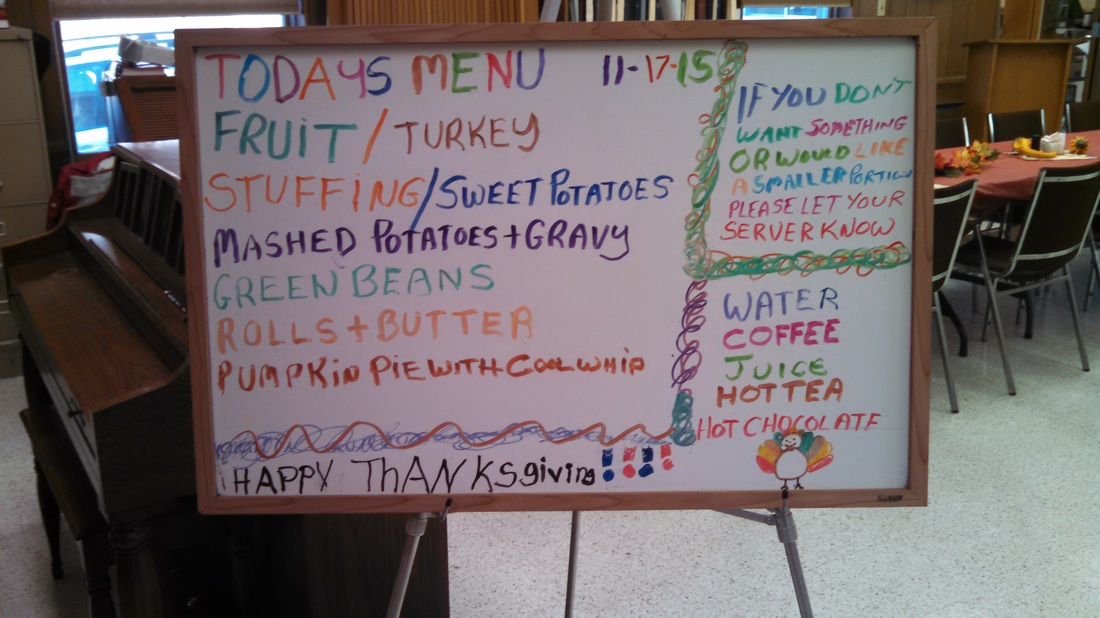 TODAYS MENU 11-17-15
FRUIT / TURKEY
STUFFING / SWEET POTATOES
MASHED POTATOES + GRAVY
GREEN BEANS
ROLLS + BUTTER
PUMPKIN PIE WITH COOL WHIP
IF YOU DON'T
WANT SOMETHING
OR WOULD LIKE
A SMALLER PORTION
PLEASE LET YOUR
SERVER KNOW
WATER
COFFEE
JUICE
HOT TEA
HOT CHOCOLATE
HAPPY THANKSgiving !!!!